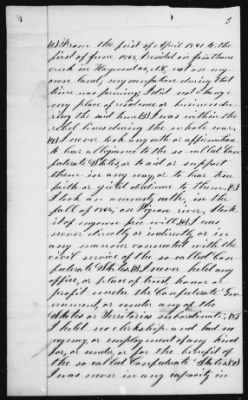 From the first of April 1861 to the
first of June 1865, I resided on
creek in Haywood Co, N.C., not on my
own land; my occupation during that
time was farming; I did not change
my place of residence or business du-
ring the said time I was within the
rebel lines during the whole war,
I never took any oath or affirmation
to bear allegiance to the so called Con
federate States, or to aid or support
them in any way, or to bear true
faith or yield obedience to them,
I took an amnesty oath, in the
fall of 1865, on Pigeon river, I took
it of my own free will, I was
never directly or indirectly or in
any manner connected with the
civil service of the so-called Con
federate States, I never held any
office, or place of trust, honor or
profit under the Confederate Gov
ernment, or under any of the
States or Territories subordinate;
I held no clerkship and had no
agency, or employment of any kind
for, or under, or for the benefit of
the so called Confederate States
I was never in any capacity in